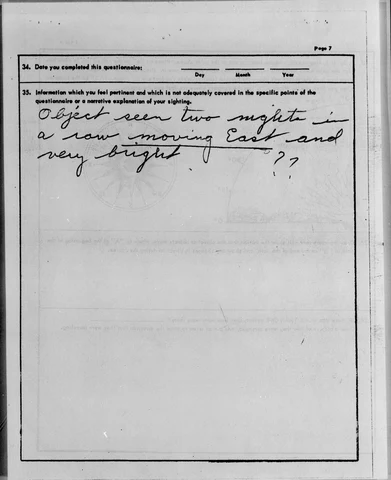 Page 7
34. Date you completed this questionnaire:
Day Month Year
35. Information which you feel pertinent and which is not adequately covered in the specific points of the
questionnaire or a narrative explanation of your sighting.
Object seen two nights in
a row moving East and
very bright ??